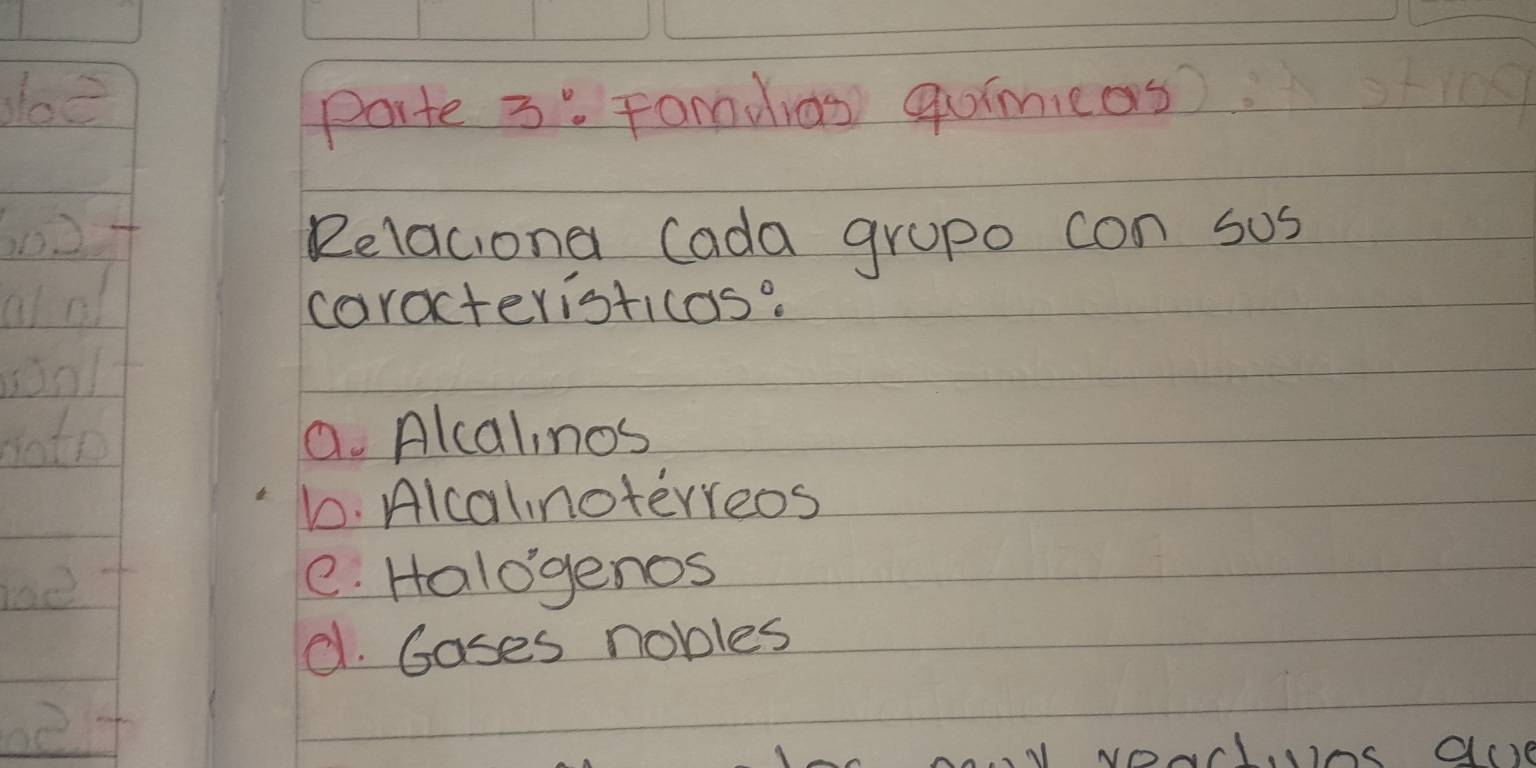 Parte 3: Familias químicas
Relaciona cada grupo con sus
características:
a. Alcalinos
b. Alcalinotérreos
c. Halógenos
d. Gases nobles
muy reactivos que